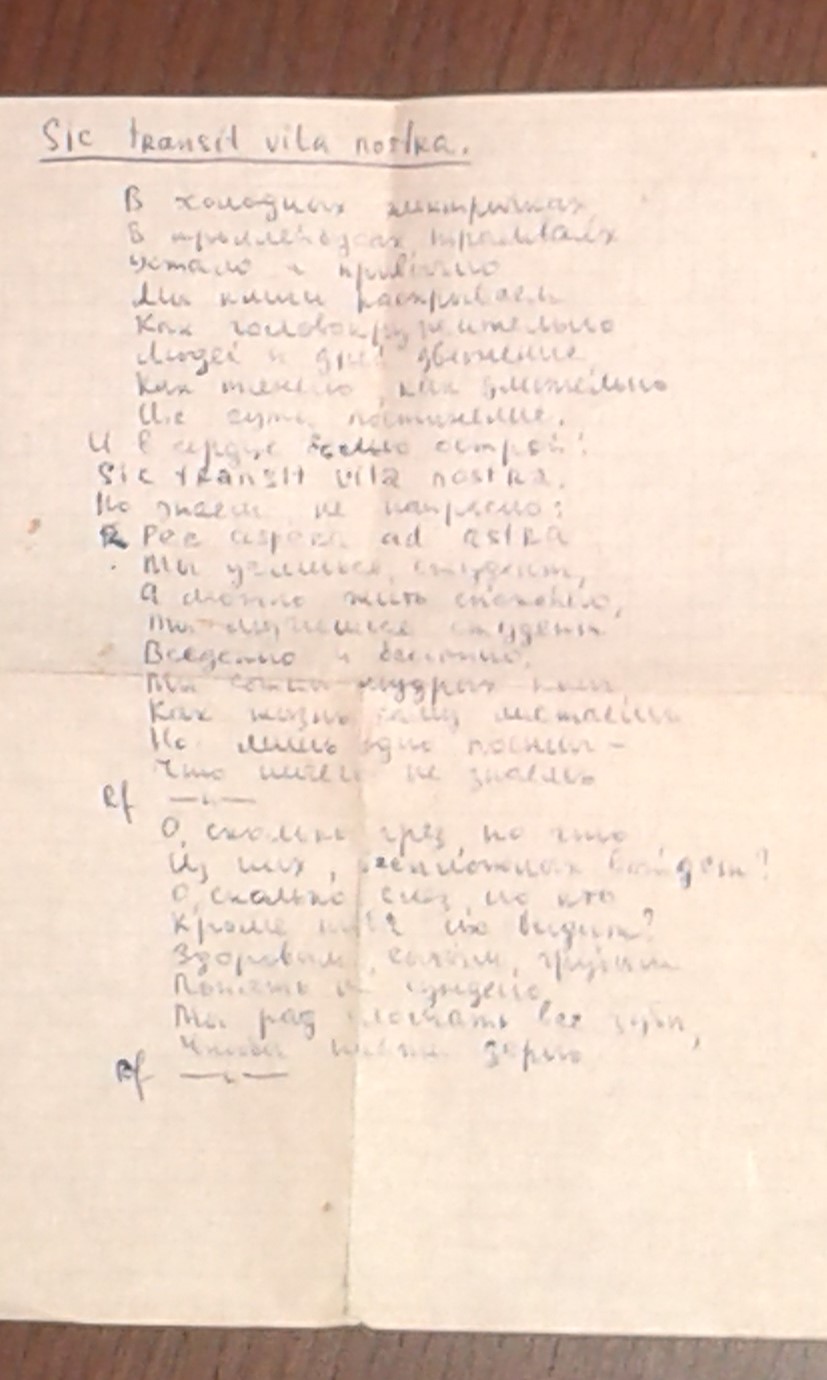 Sic transit vita nostra.
В холодных электричках
В троллейбусах, трамваях
Устало и привычно
Мы книги раскрываем
Как головокружительно
Людей и дней движение,
Как тяжело, как длительно
Их сути постижение.
И в сердце болью острой:
Sic transit vita nostra.
Но знаем не напрасно:
Per aspera ad astra
Ты учишься, студент,
А можно жить спокойно,
Ты мучишься студент
и
Ты мудрых книг
Как жизнь листаешь
Но лишь одно
Что ничего не знаешь
Rf —"—
О, сколько грёз, но что
Из них, выйдет?
О, сколько слёз, но кто
Кроме тебя их видит?
Здоровым, сытым, грубым
Понять не суждено,
Ты рад все зубы,
зерно
Rf —"—